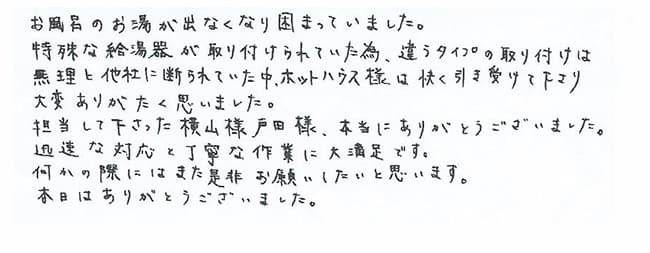 お風呂のお湯が出なくなり困まっていました。
特殊な給湯器が取り付けられていた為、違うタイプの取り付けは
無理と他社に断られていた中、ホットハウス様は快く引き受けて下さり
大変ありがたく思いました。
担当して下さった横山様戸田様、本当にありがとうございました。
迅速な対応と丁寧な作業に大満足です。
何かの際にはまた是非お願いしたいと思います。
本日はありがとうございました。